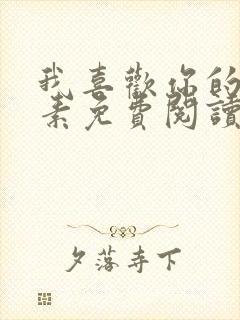 我喜歡你的
素免費閱讀
夕落寺下